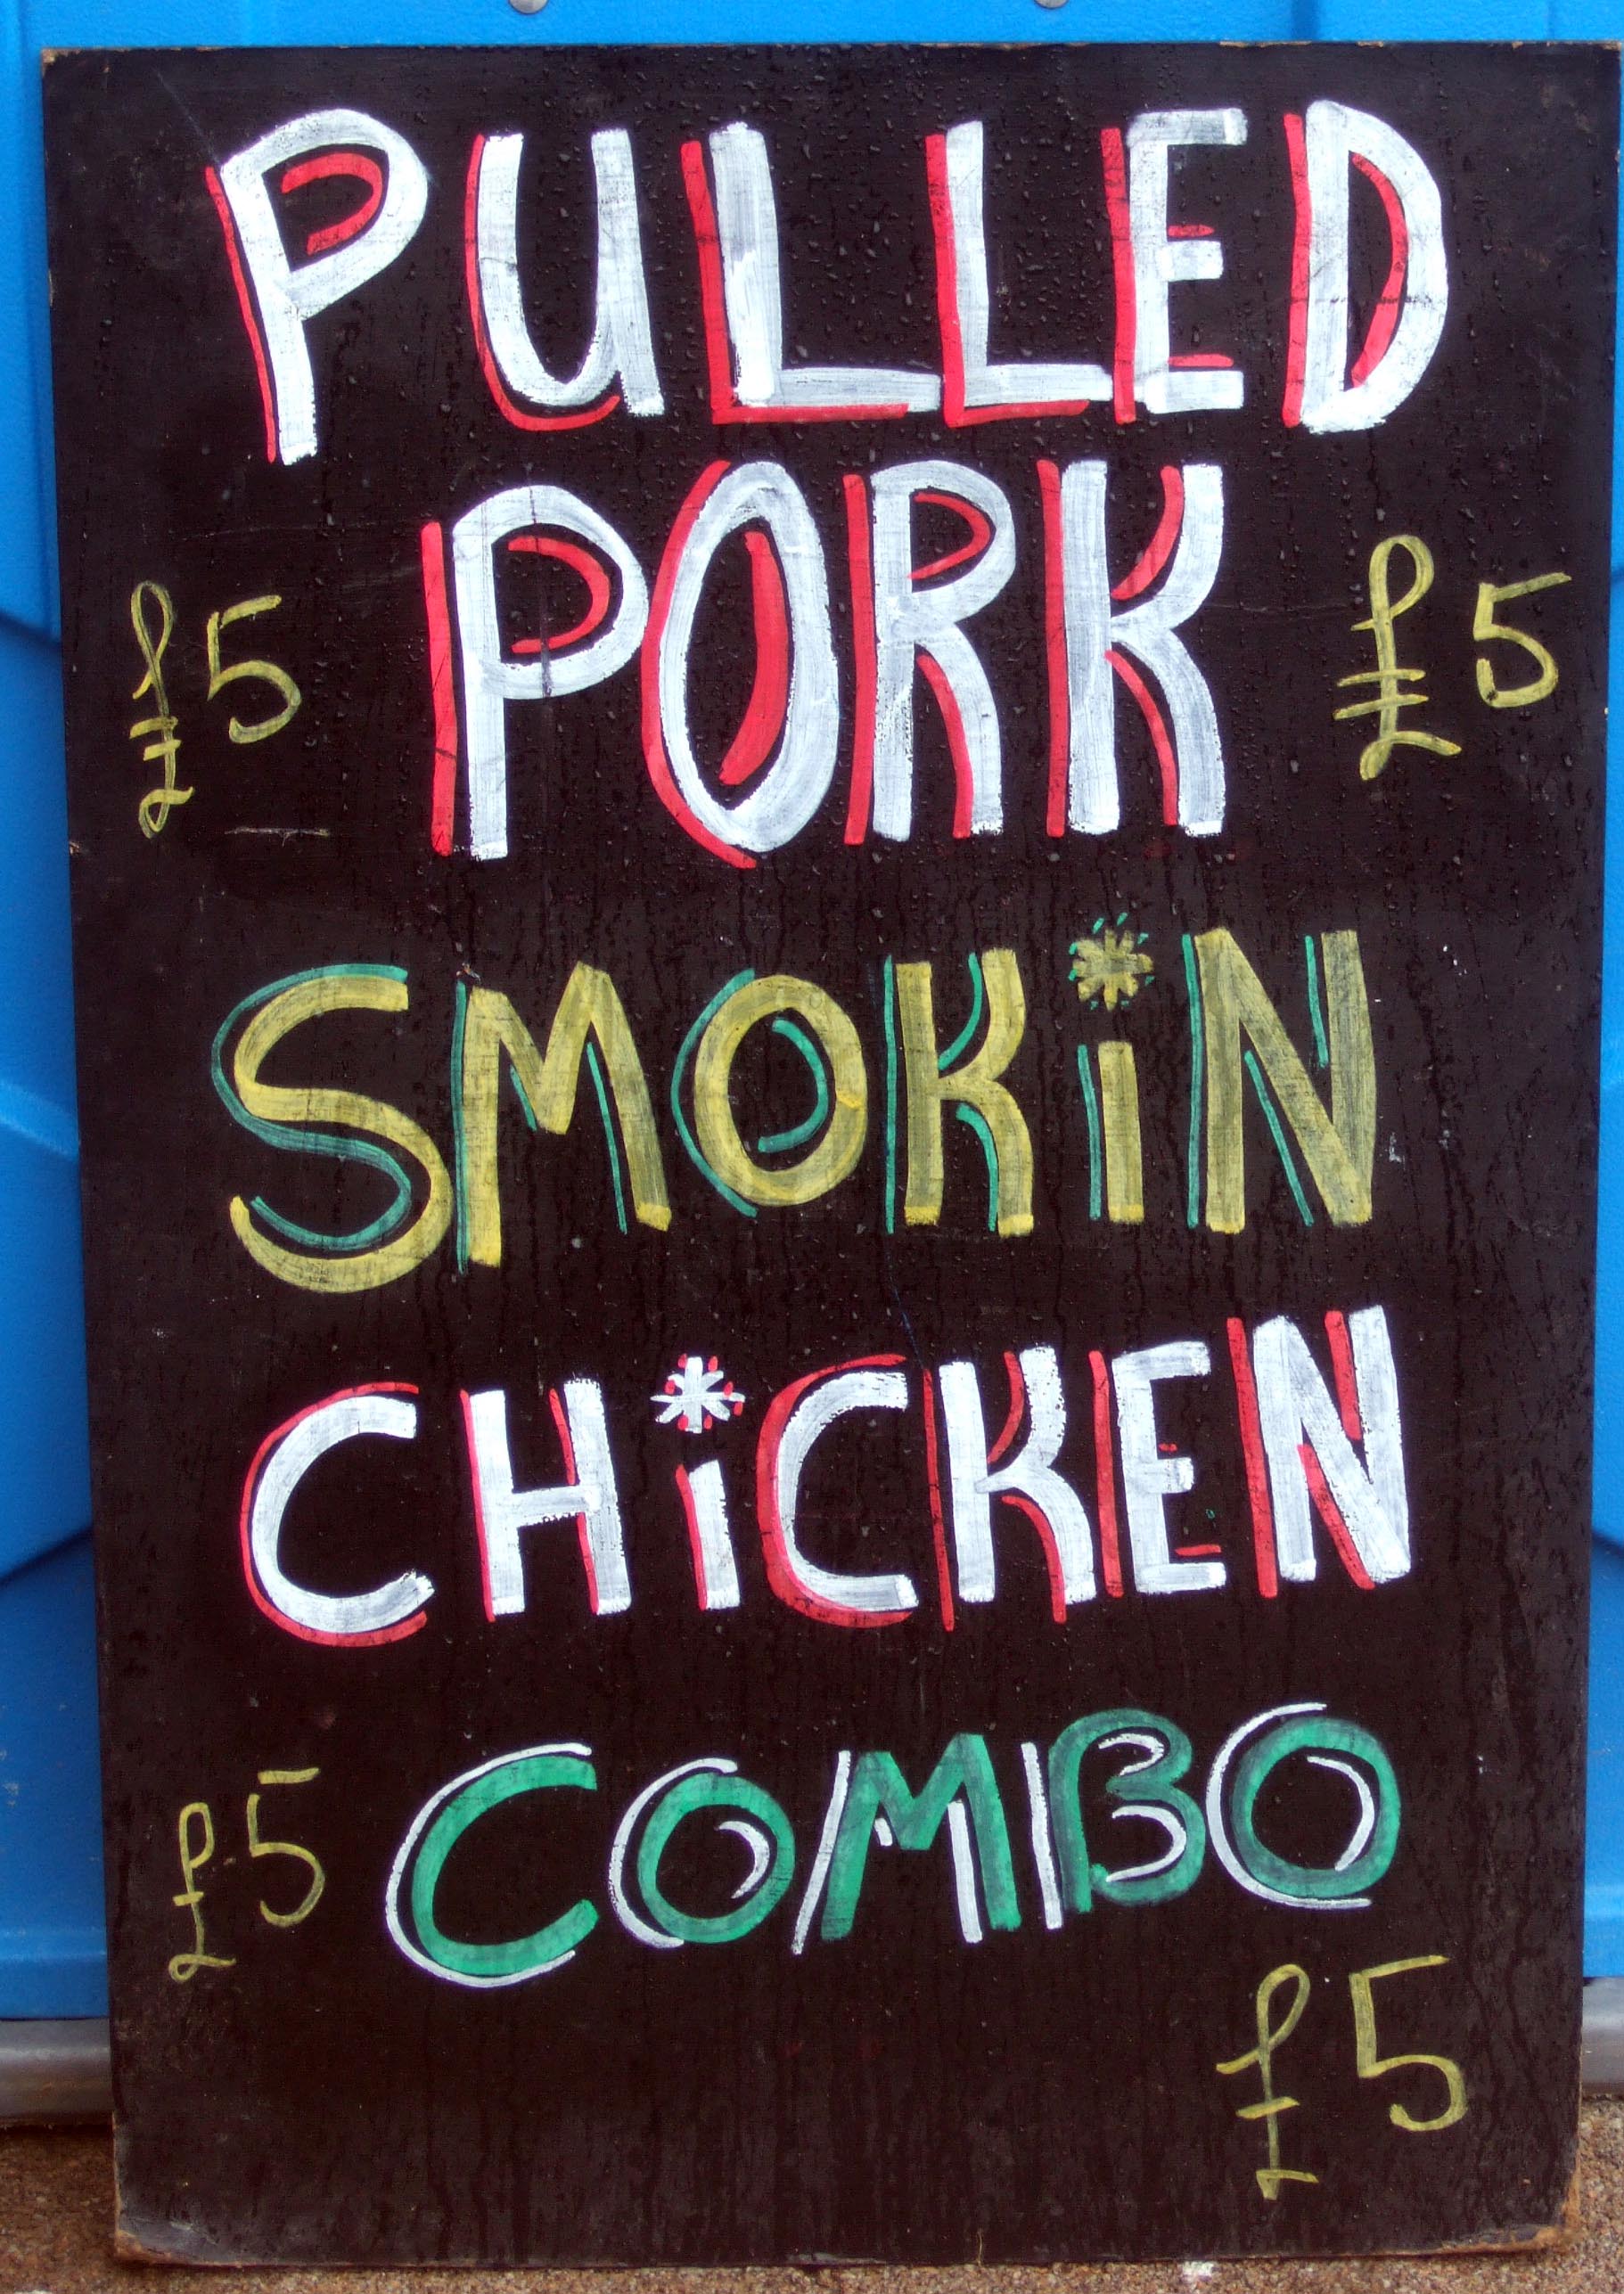 PULLED
£5 PORK £5
SMOKiN
CHiCKEN
£5 COMBO
£5